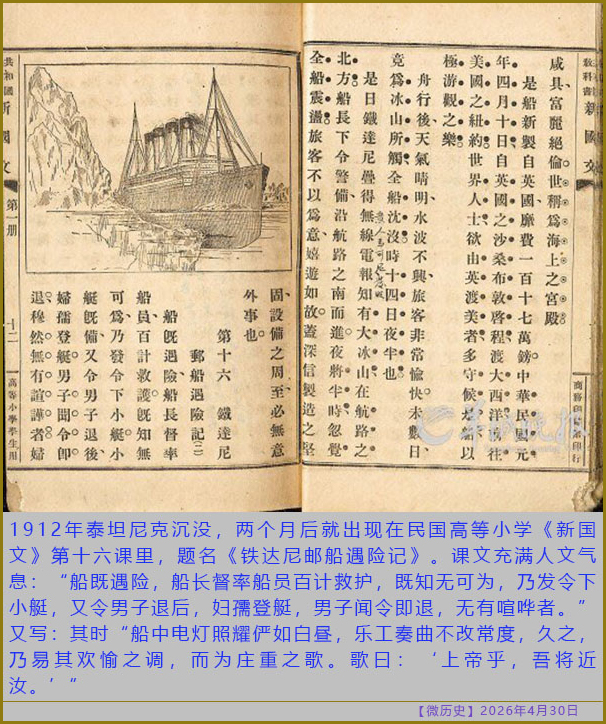 教科書 新國文
商務印書館印行
咸具富麗絕倫、世稱爲海上之宮殿。
是船新製自英國、靡費一百十七萬鎊、中華民國元
年四月十日、自英國之沙桑布敦啓程、渡大西洋、前往
美國之紐約、世界人士、欲由英渡美者、多守候 以
極游觀之樂。
舟行後、天氣晴明、水波不興、旅客非常愉快、未數日、
竟爲冰山所觸、全船沈沒、時十四日夜半也。
是日鐵達尼疊得無線電報、知有大冰山在航路之
北方、船長下令警備、沿航路之南而進、夜將半時、忽覺
全船震盪、旅客不以爲意、嬉遊如故、蓋深信製造之堅
固、設備之周至、必無意
外事也。
第十六 鐵達尼
郵船遇險記(二)
船旣遇險、船長督率
船員百計救護、旣知無
可爲、乃發令下小艇、小
艇旣備、又令男子退後、
婦孺登艇、男子聞令卽
退、穆然無有諠譁者、婦
共和國 新國文 第一册 十二 高等小學學生用
羊城晚报
1912年泰坦尼克沉没，两个月后就出现在民国高等小学《新国
文》第十六课里，题名《铁达尼邮船遇险记》。课文充满人文气
息：“船既遇险，船长督率船员百计救护，既知无可为，乃发令下
小艇，又令男子退后，妇孺登艇，男子闻令即退，无有喧哗者。”
又写：其时“船中电灯照耀俨如白昼，乐工奏曲不改常度，久之，
乃易其欢愉之调，而为庄重之歌。歌曰：‘上帝乎，吾将近
汝。’”
【微历史】2026年4月30日